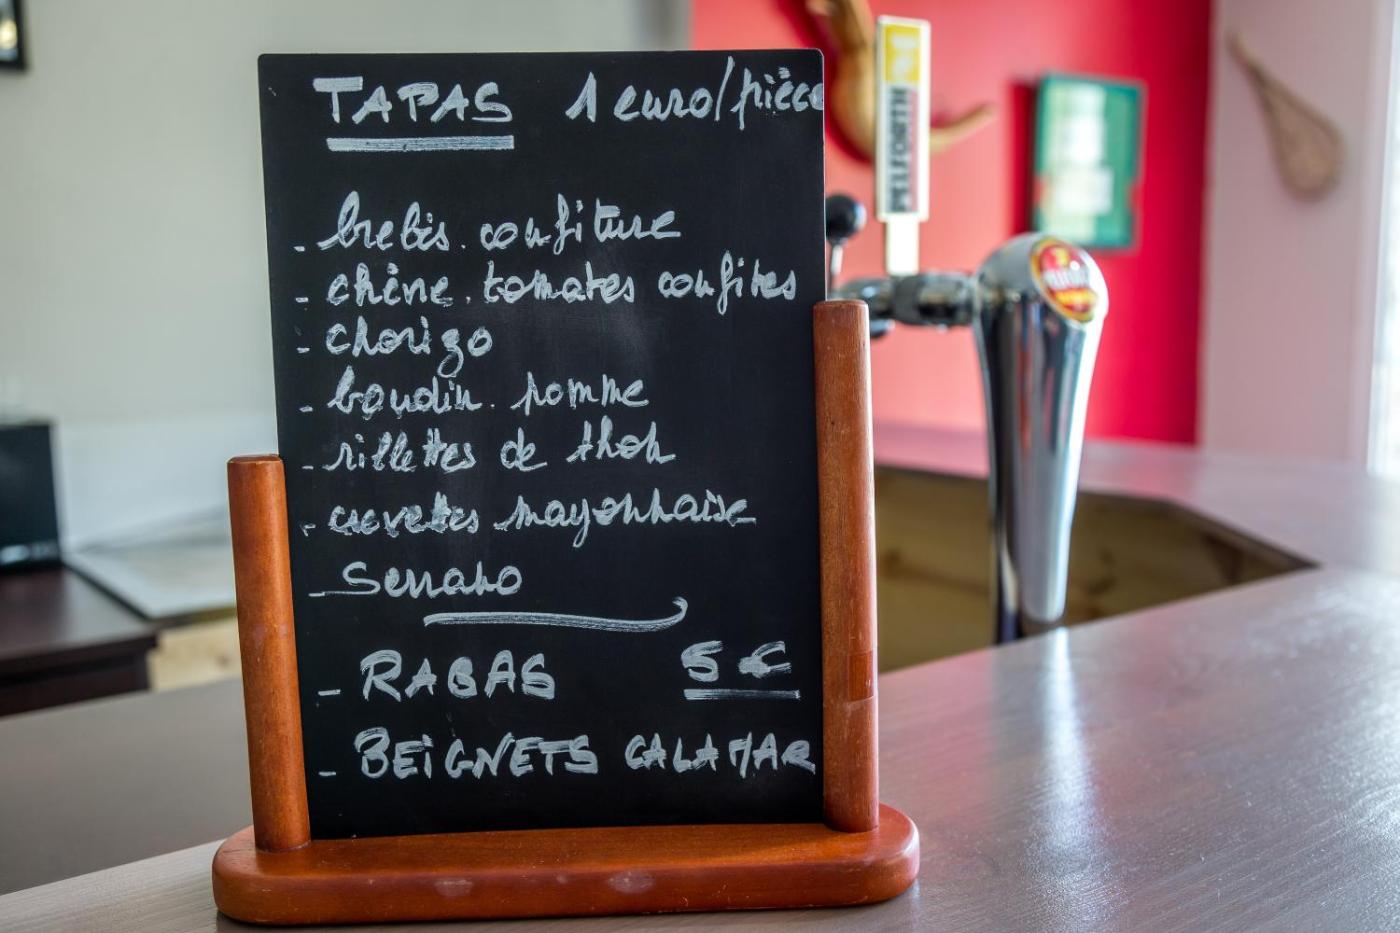 TAPAS 1 euro/pièce
- brebis. confiture
- chène. tomates confites
- chorizo
- boudin. pomme
- rillettes de thon
- crevettes mayonnaise
- Serrano
- RABAS 5 €
- BEIGNETS CALAMAR
PELFORTH